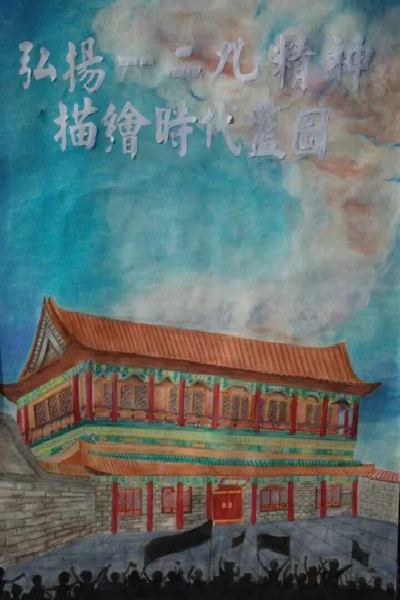 弘揚一二九精神
描繪時代藍圖